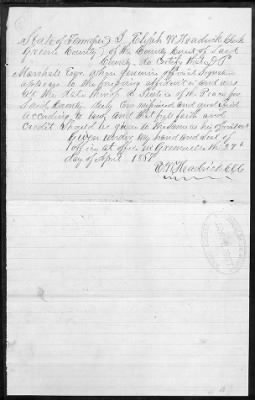 State of Tennessee } I, Elijah W Headrick Clerk
Greene County } of the County Court of said
County do certify that J P
Marshall Esqr whose genuine official signature
appears to the foregoing affidavit is and was
at the date thereof a Justice of the Peace for
said County duly commissioned and qualified
according to law and that full faith and
credit should be given to his acts as his official
Given under my hand and seal of
office at office in Greeneville the 29th
day of April 188
E W Headrick Clk